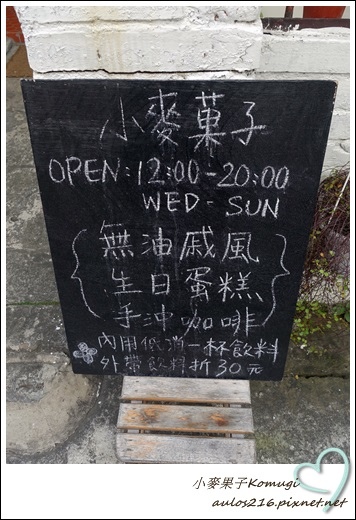 小麥菓子
OPEN:12:00-20:00
WED-SUN
無油戚風
生日蛋糕
手沖咖啡
內用低消一杯飲料
外帶飲料折30元
小麥果子Komugi
aulos216.pixnet.net